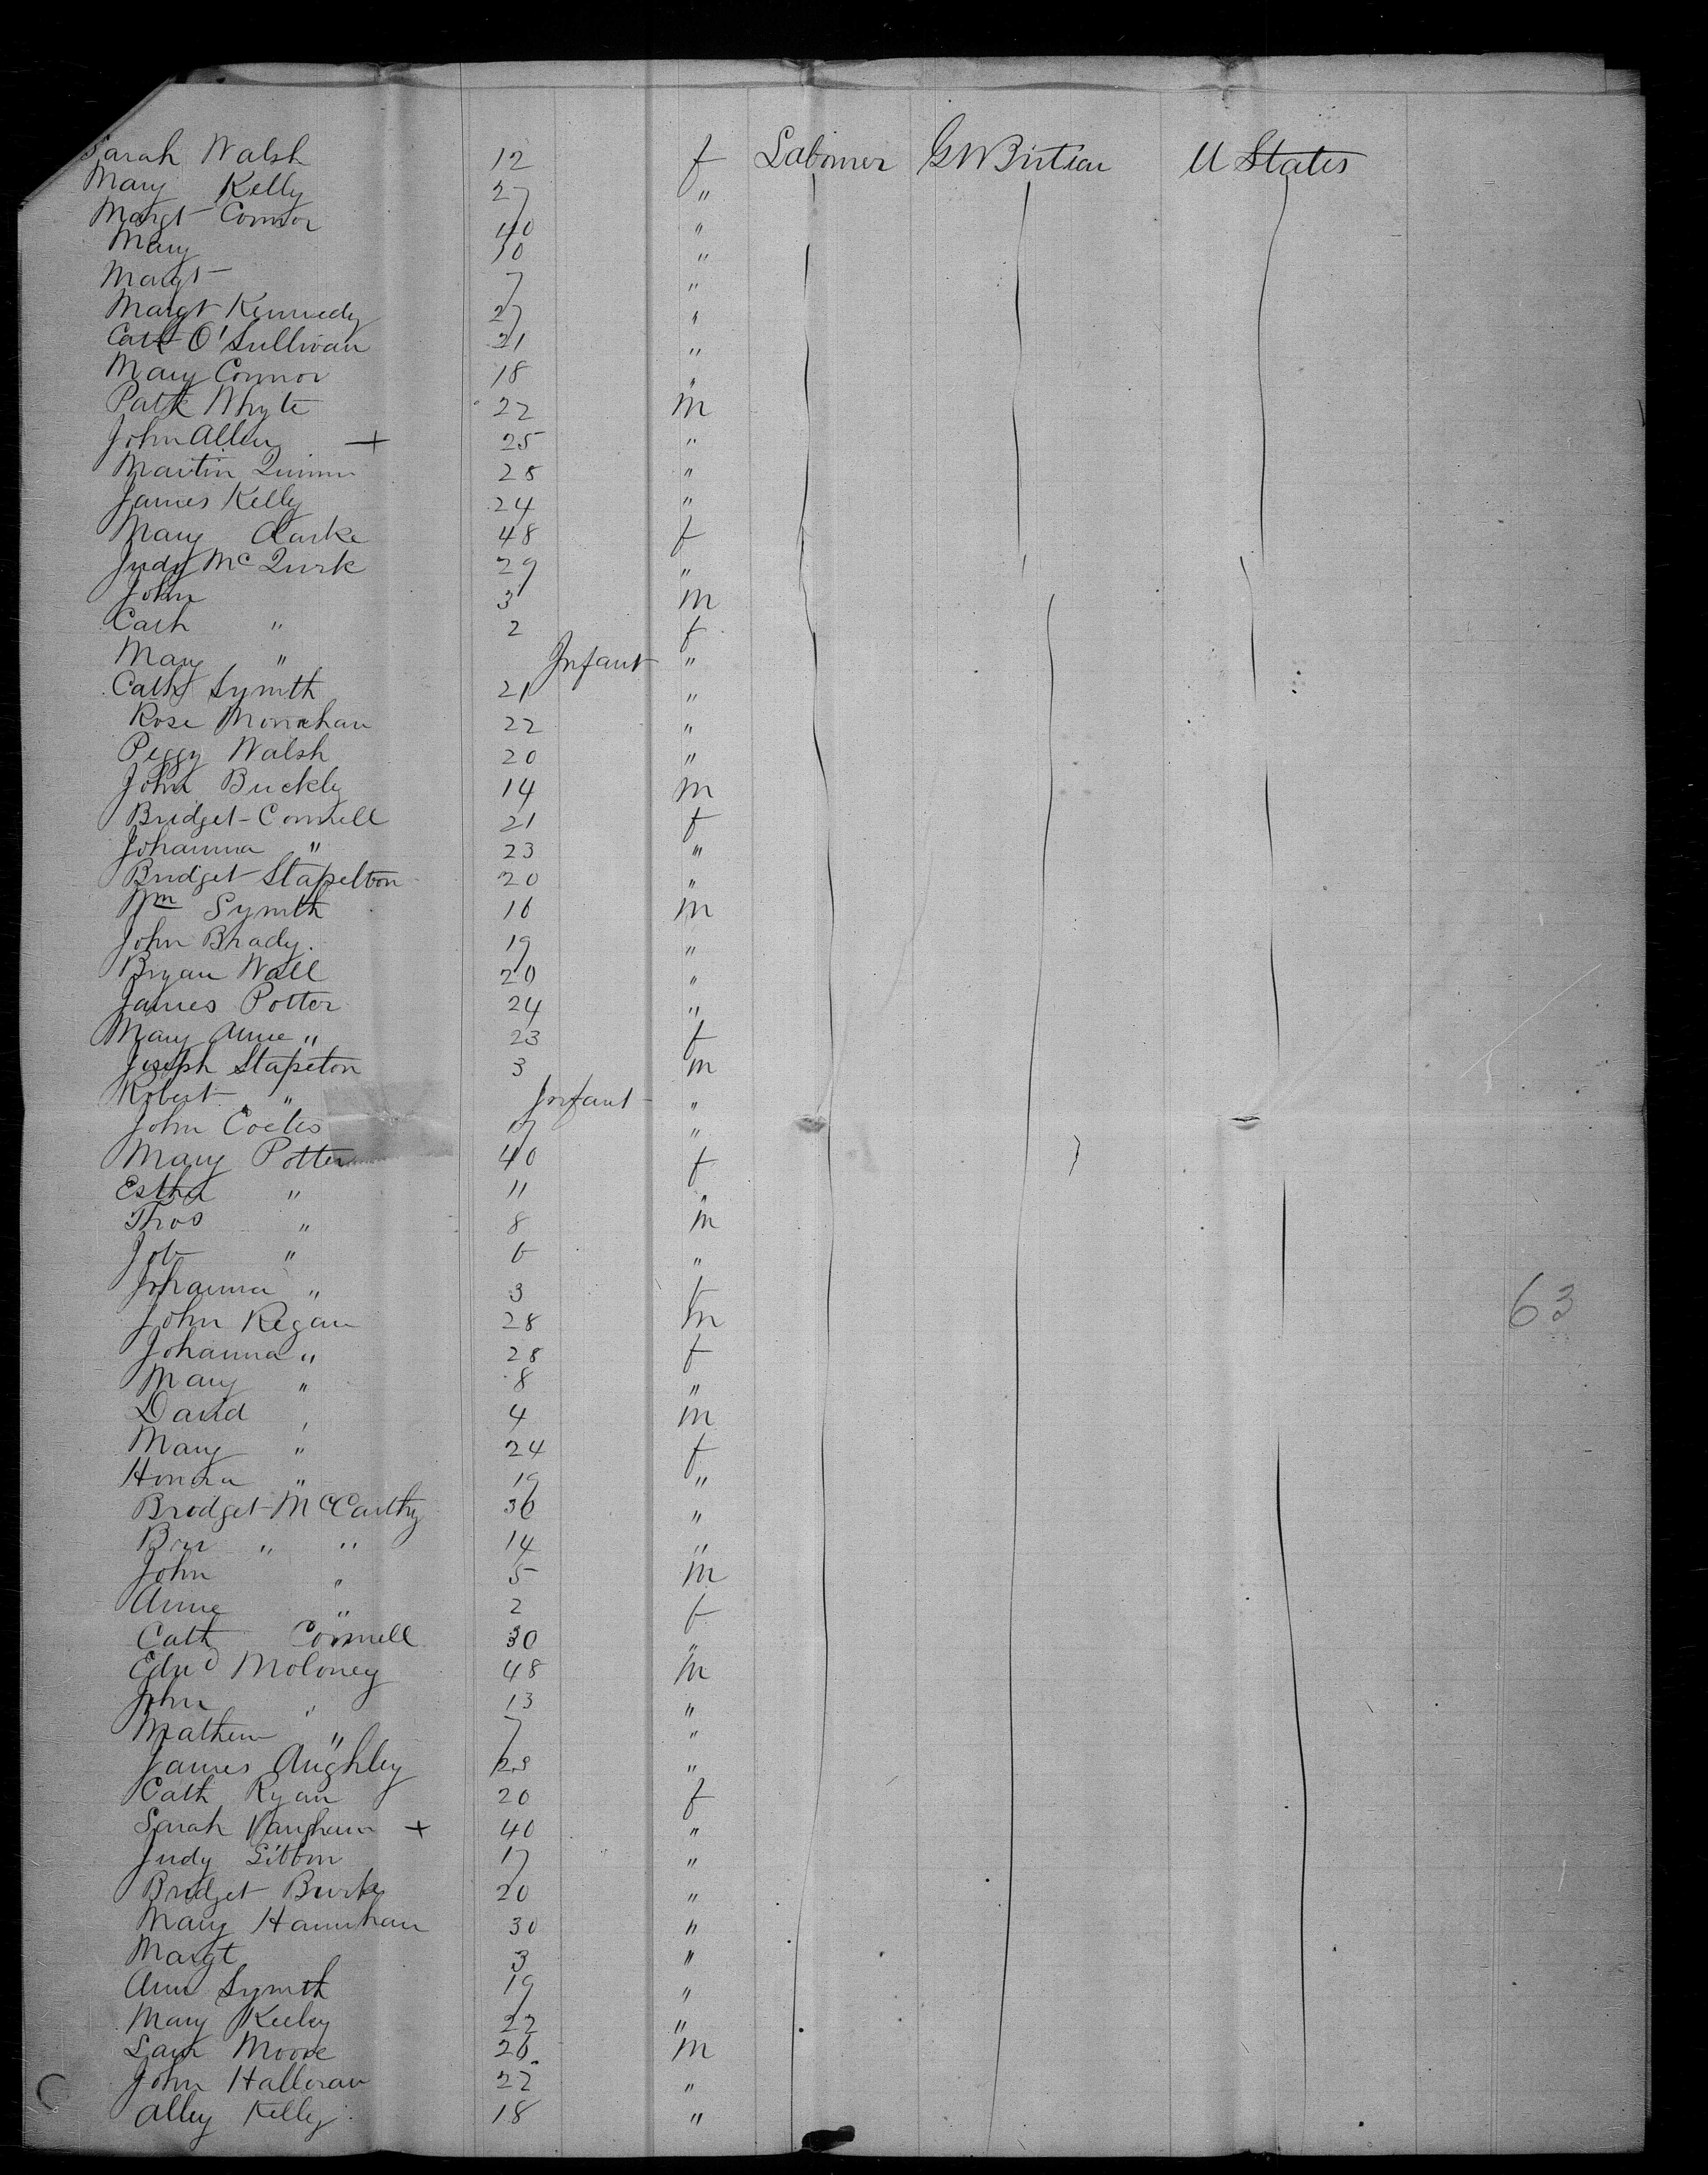 Sarah Walsh 12 f Labourer Gt Britain U States
Mary Kelly 27 "
Margt Connor 40 "
Mary 10 "
Margt 7 "
Margt Kennedy 27 "
Cath O'Sullivan 21 "
Mary Connor 18 "
Patk Whyte 22 m
John Allen + 25 "
Martin Quinn 28 "
James Kelly 24 "
Mary Clarke 48 f
Judy McQurk 29 "
John 3 m
Cath " 2 f
Mary " Infant "
Cath Symth 21 "
Rose Monahan 22 "
Peggy Walsh 20 "
John Buckly 14 m
Bridget Connell 21 f
Johanna " 23 "
Bridget Stapelton 20 "
Wm Symth 16 m
John Brady. 19 "
Bryan Wall 20 "
James Potter 24 "
Mary Anne " 23 f
Joseph Stapeton 3 m
Robert " Infant "
John 17 "
Mary Potter 40 f
Esther " 11 "
Thos " 8 m
Job " 6 "
Johanna " 3 f
John Regan 28 m
Johanna " 28 f
Mary " 8 "
David " 4 m
Mary " 24 f
Honora " 19 "
Bridget McCarthy 36 "
" " 14 "
John " 5 m
Anne " 2 f
Cath Connell 30 "
Edwd Moloney 48 m
John " 13 "
Mathew " 7 "
James Aughley "
Cath Ryan 20 f
Sarah Vaughan + 40 "
Judy Gibbon 17 "
Bridget Burke 20 "
Mary Hannahan 30 "
Margt 3 "
Ann Symth 19 "
Mary Keeley 22 "
Sam Moore 26 m
John Halloran 22 "
Alley Kelly 18 "
63